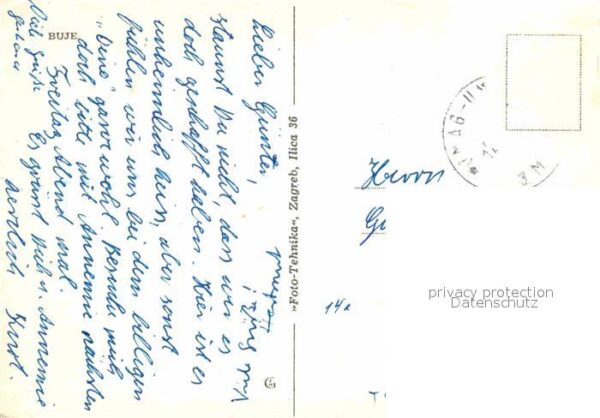 BUJE
Lieber Günter,
staunst Du nicht, dass wir es
doch geschafft haben. Hier ist es
unheimlich heiss, aber sonst
fühlen wir uns bei dem billigen
"Vino" ganz wohl. Besuche mich
doch bitte mit Annemie nächsten
Freitag Abend mal.
Es grüsst Dich u. Annemie
herzlich
Horst.
Viele Grüße
»Foto-Tehnika«, Zagreb, Ilica 36
Herrn
privacy protection
Datenschutz
14a